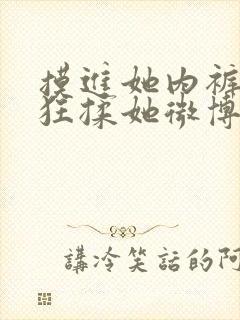 摸進她內褲
狂揉她微博
講冷笑話的阿